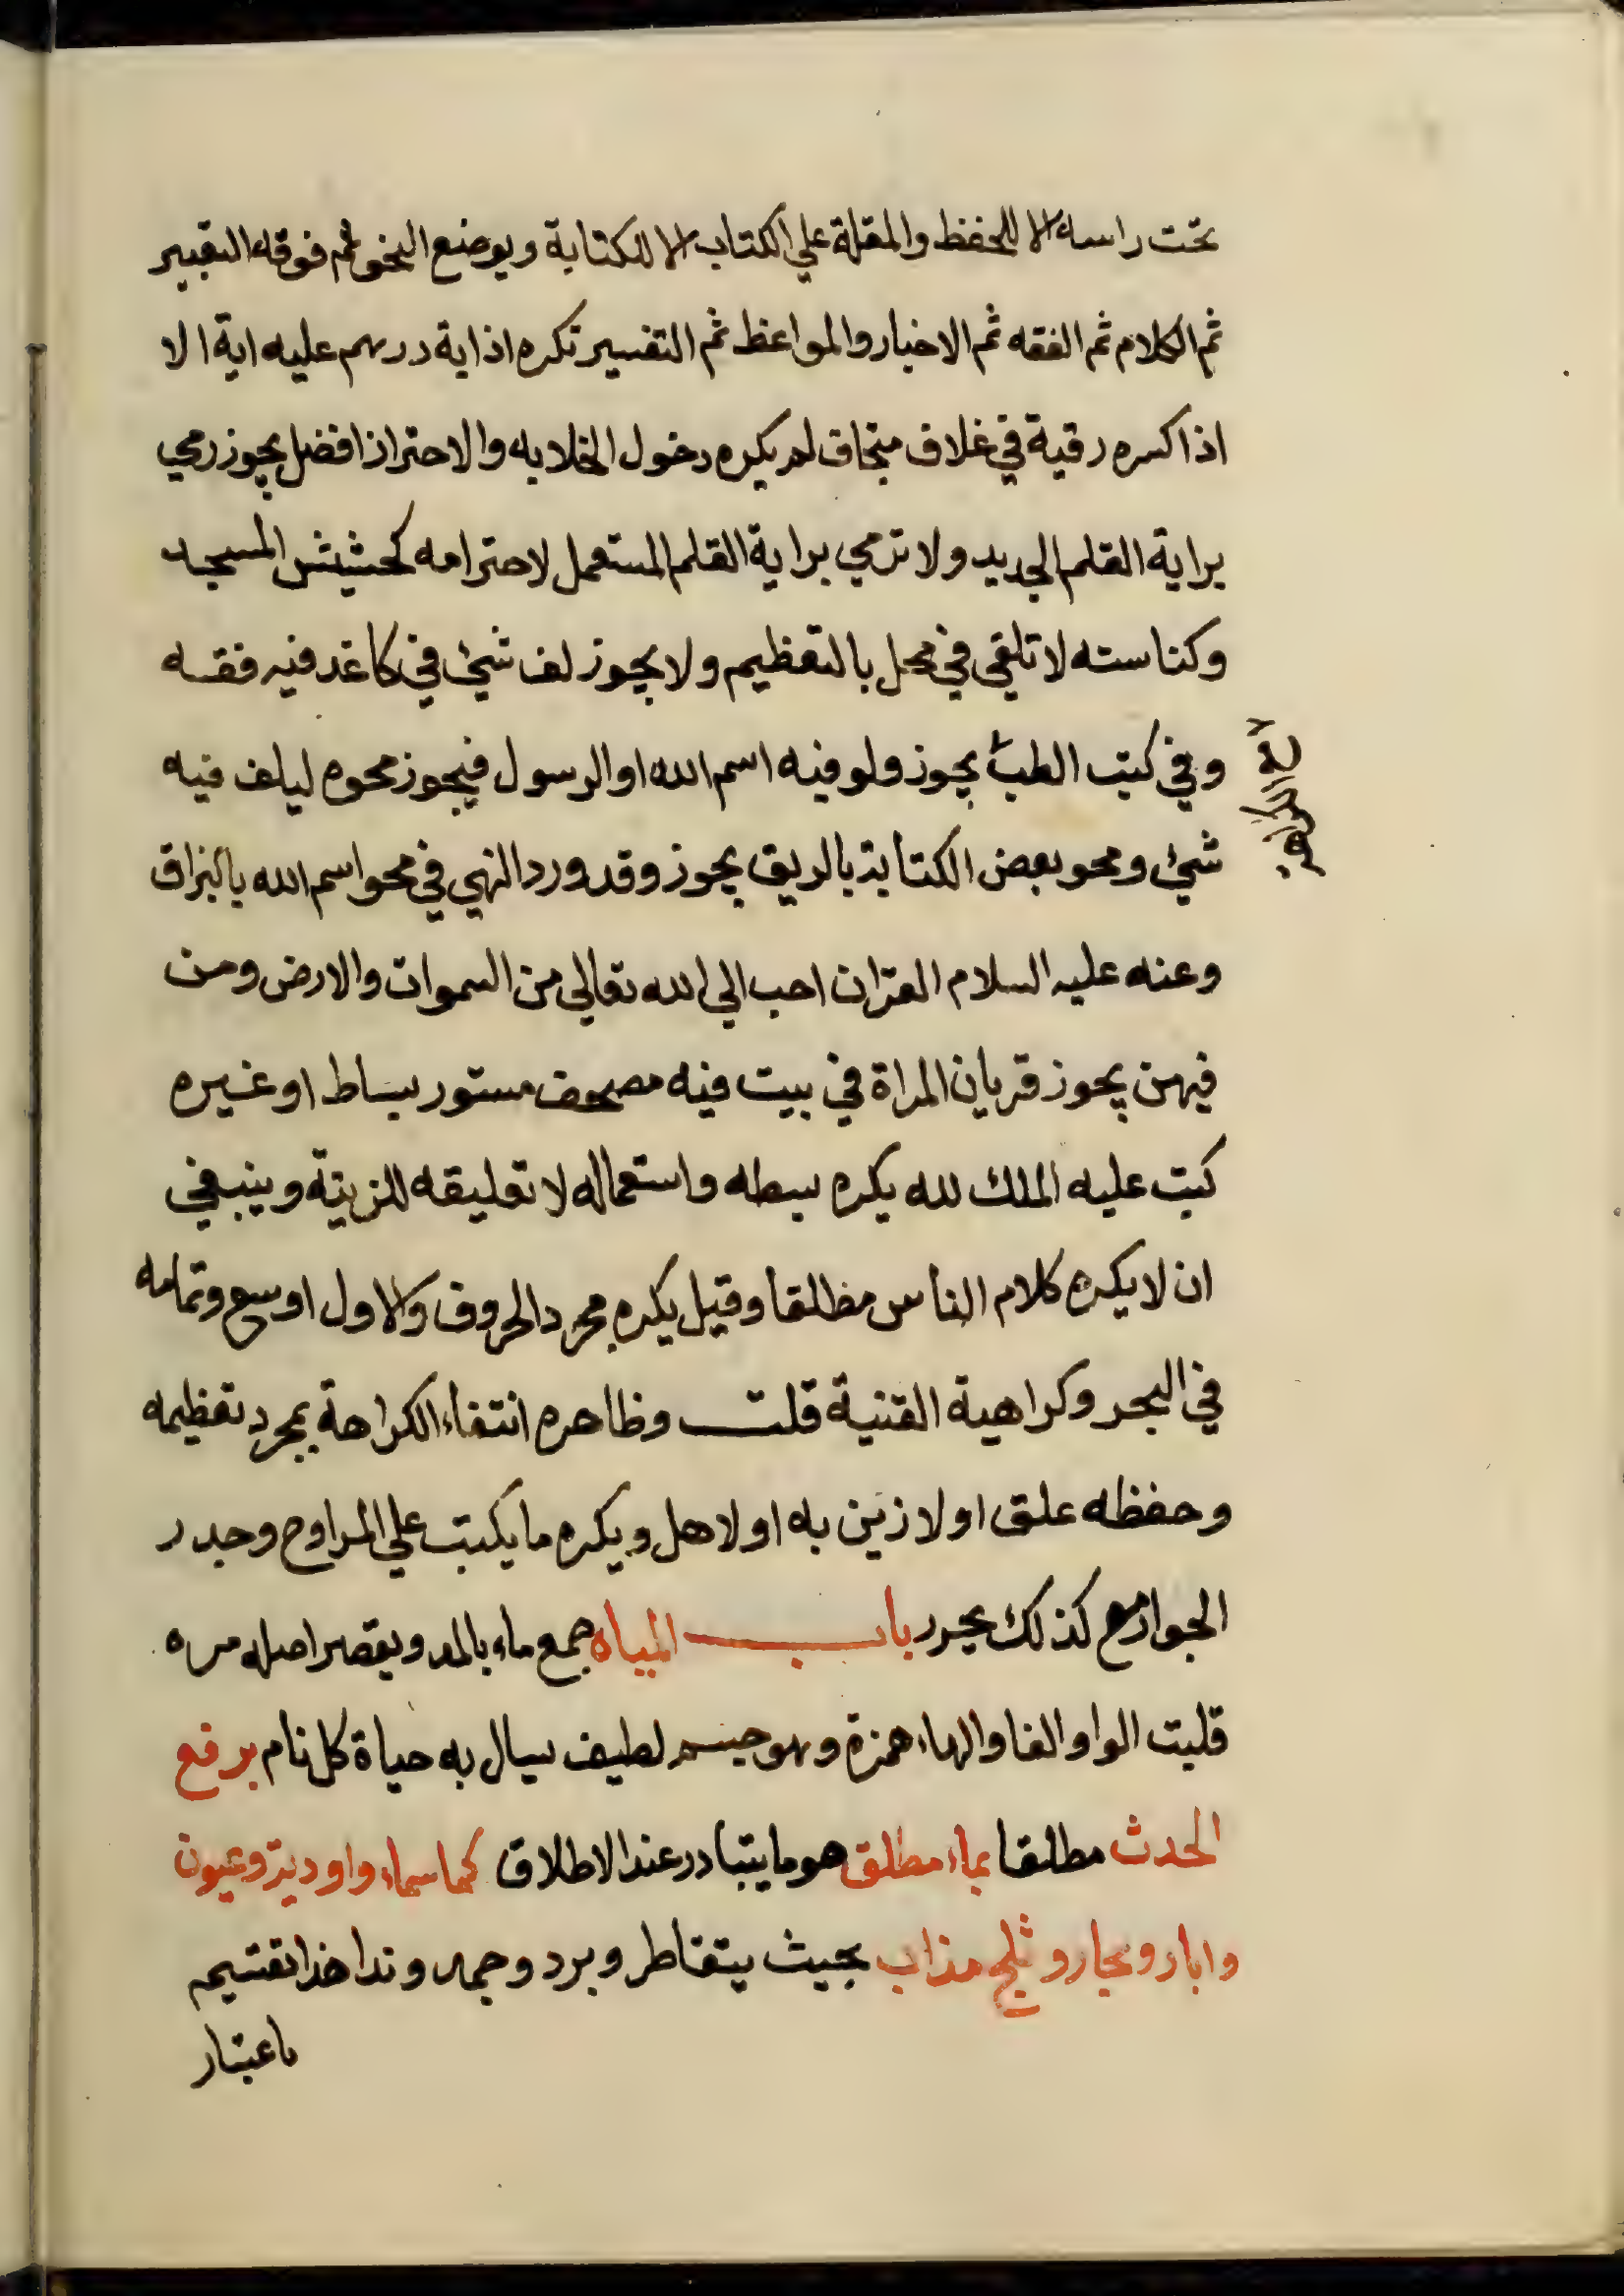 تحت راسه الا للحفظ والمقلة علي الكتاب الا للكتابة ويوضع النحو ثم فوقه التعبير
ثم الكلام ثم الفقه ثم الاخبار والمواعظ ثم التفسير تكره اذابة درهم عليه اية الا
اذا كسره رقية في غلاف متجاف لم يكره دخول الخلا به والاحتراز افضل يجوز رمي
براية القلم الجديد ولا ترمي براية القلم المستعمل لاحترامه كحشيش المسجد
وكناسته لا تلقي في محل بالتعظيم ولا يجوز لف شيئ في كاغد فيه فقه
وفي كتب الطب يجوز ولو فيه اسم الله او الرسول فيجوز محوه ليلف فيه
شيئ ومحو بعض الكتابة بالريق يجوز وقد ورد النهي في محو اسم الله بالبزاق
وعنه عليه السلام القران احب الي الله تعالي من السموات والارض ومن
فيهن يجوز قربان المراة في بيت فيه مصحف مستور بساط او غيره
كتب عليه الملك لله يكره بسطه واستعماله لا تعليقه للزينة وينبغي
ان لا يكره كلام الناس مطلقا وقيل يكره مجرد الحروف والاول اوسع وتمامه
في البحر وكراهية القنية قلت وظاهره انتفاء الكراهة بمجرد تعظيمه
وحفظه علق اولا زين به اولا هل ويكره ما يكتب علي المراوح وجدر
الجوامع كذلك يحرر باب المياه جمع ماء بالمد ويقصر اصله موه
قلبت الواو الفا والهاء همزة وهو جسم لطيف سيال به حياة كل نام يرفع
الحدث مطلقا بماء مطلق هو ما يتبادر عند الاطلاق كما سماء واودية وعيون
وابار وبحار وثلج مذاب بحيث يتقاطر وبرد وجمد وندا هذا تقسيم
باعتبار